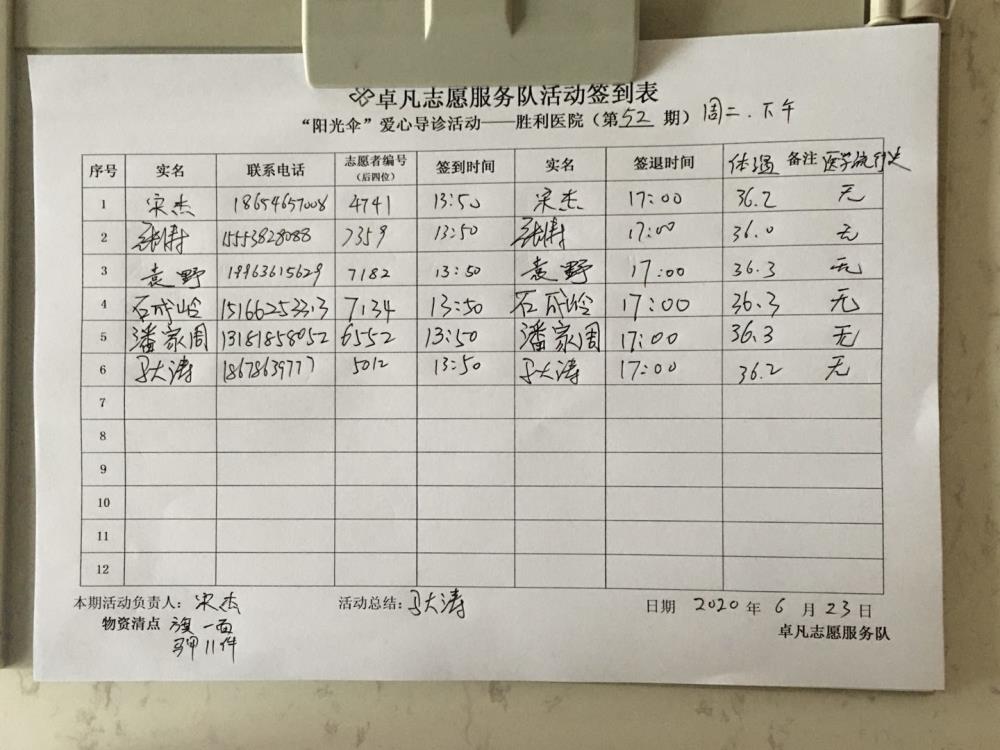 卓凡志愿服务队活动签到表
“阳光伞”爱心导诊活动——胜利医院（第 52 期）周二.下午
序号 实名 联系电话 志愿者编号（后四位） 签到时间 实名 签退时间 体温 备注 医学流行史
1 宋杰 18654657008 4741 13:50 宋杰 17:00 36.2 无
2 张涛 15553828088 7359 13:50 张涛 17:00 36.0 无
3 袁野 19963615629 7182 13:50 袁野 17:00 36.3 无
4 石成岭 15166253313 7134 13:50 石成岭 17:00 36.3 无
5 潘家周 13181858052 6552 13:50 潘家周 17:00 36.3 无
6 马大涛 18678639777 5012 13:50 马大涛 17:00 36.2 无
7
8
9
10
11
12
本期活动负责人：宋杰 活动总结：马大涛 日期 2020 年 6 月 23 日
物资清点 旗一面 卓凡志愿服务队
马甲11件